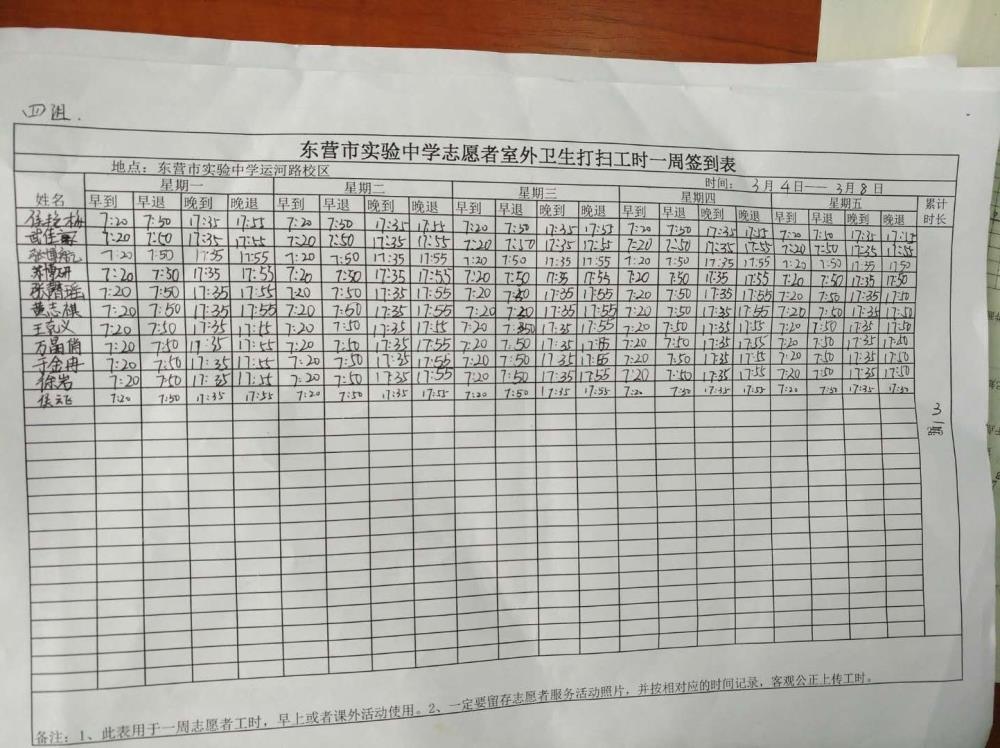 四组.
东营市实验中学志愿者室外卫生打扫工时一周签到表
地点：东营市实验中学运河路校区 时间： 3月4日——3月8日
姓名 星期一 星期二 星期三 星期四 星期五 累计时长
早到 早退 晚到 晚退 早到 早退 晚到 晚退 早到 早退 晚到 晚退 早到 早退 晚到 晚退 早到 早退 晚到 晚退
7:20 7:50 17:35 17:55 7:20 7:50 17:35 17:55 7:20 7:50 17:35 17:55 7:20 7:50 17:35 17:55 7:20 7:50 17:35
7:20 7:50 17:35 17:55 7:20 7:50 17:35 17:55 7:20 7:50 17:35 17:55 7:20 7:50 17:35 17:55 7:20 7:50 17:35 17:55
7:20 7:50 17:35 17:55 7:20 7:50 17:35 17:55 7:20 7:50 17:35 17:55 7:20 7:50 17:35 17:55 7:20 7:50 17:35 17:50
7:20 7:50 17:35 17:55 7:20 7:50 17:35 17:55 7:20 7:50 17:35 17:55 7:20 7:50 17:35 17:55 7:20 7:50 17:35 17:50
张馨瑶 7:20 7:50 17:35 17:55 7:20 7:50 17:35 17:55 7:20 17:35 17:55 7:20 7:50 17:35 17:55 7:20 7:50 17:35 17:50
黄志祺 7:20 7:50 17:35 17:55 7:20 7:50 17:35 17:55 7:20 17:35 17:55 7:20 7:50 17:35 17:55 7:20 7:50 17:35 17:50
王克义 7:20 7:50 17:35 17:55 7:20 7:50 17:35 17:55 7:20 17:35 17:55 7:20 7:50 17:35 17:55 7:20 7:50 17:35 17:50
万晶俏 7:20 7:50 17:35 17:55 7:20 7:50 17:35 17:55 7:20 7:50 17:35 7:20 7:50 17:35 17:55 7:20 7:50 17:35 17:50
于金冉 7:20 7:50 17:35 17:55 7:20 7:50 17:35 17:55 7:20 7:50 17:35 7:20 7:50 17:35 17:55 7:20 7:50 17:35 17:50
徐岩 7:20 7:50 17:35 17:55 7:20 7:50 17:35 17:55 7:20 7:50 17:35 17:55 7:20 7:50 17:35 17:55 7:20 7:50 17:35 17:50
侯云飞 7:20 7:50 17:35 17:55 7:20 7:50 17:35 17:55 7:20 7:50 17:35 17:55 7:20 7:50 17:35 17:55 7:20 7:50 17:35 17:50
3
备注：1、此表用于一周志愿者工时，早上或者课外活动使用。2、一定要留存志愿者服务活动照片，并按相对应的时间记录，客观公正上传工时。